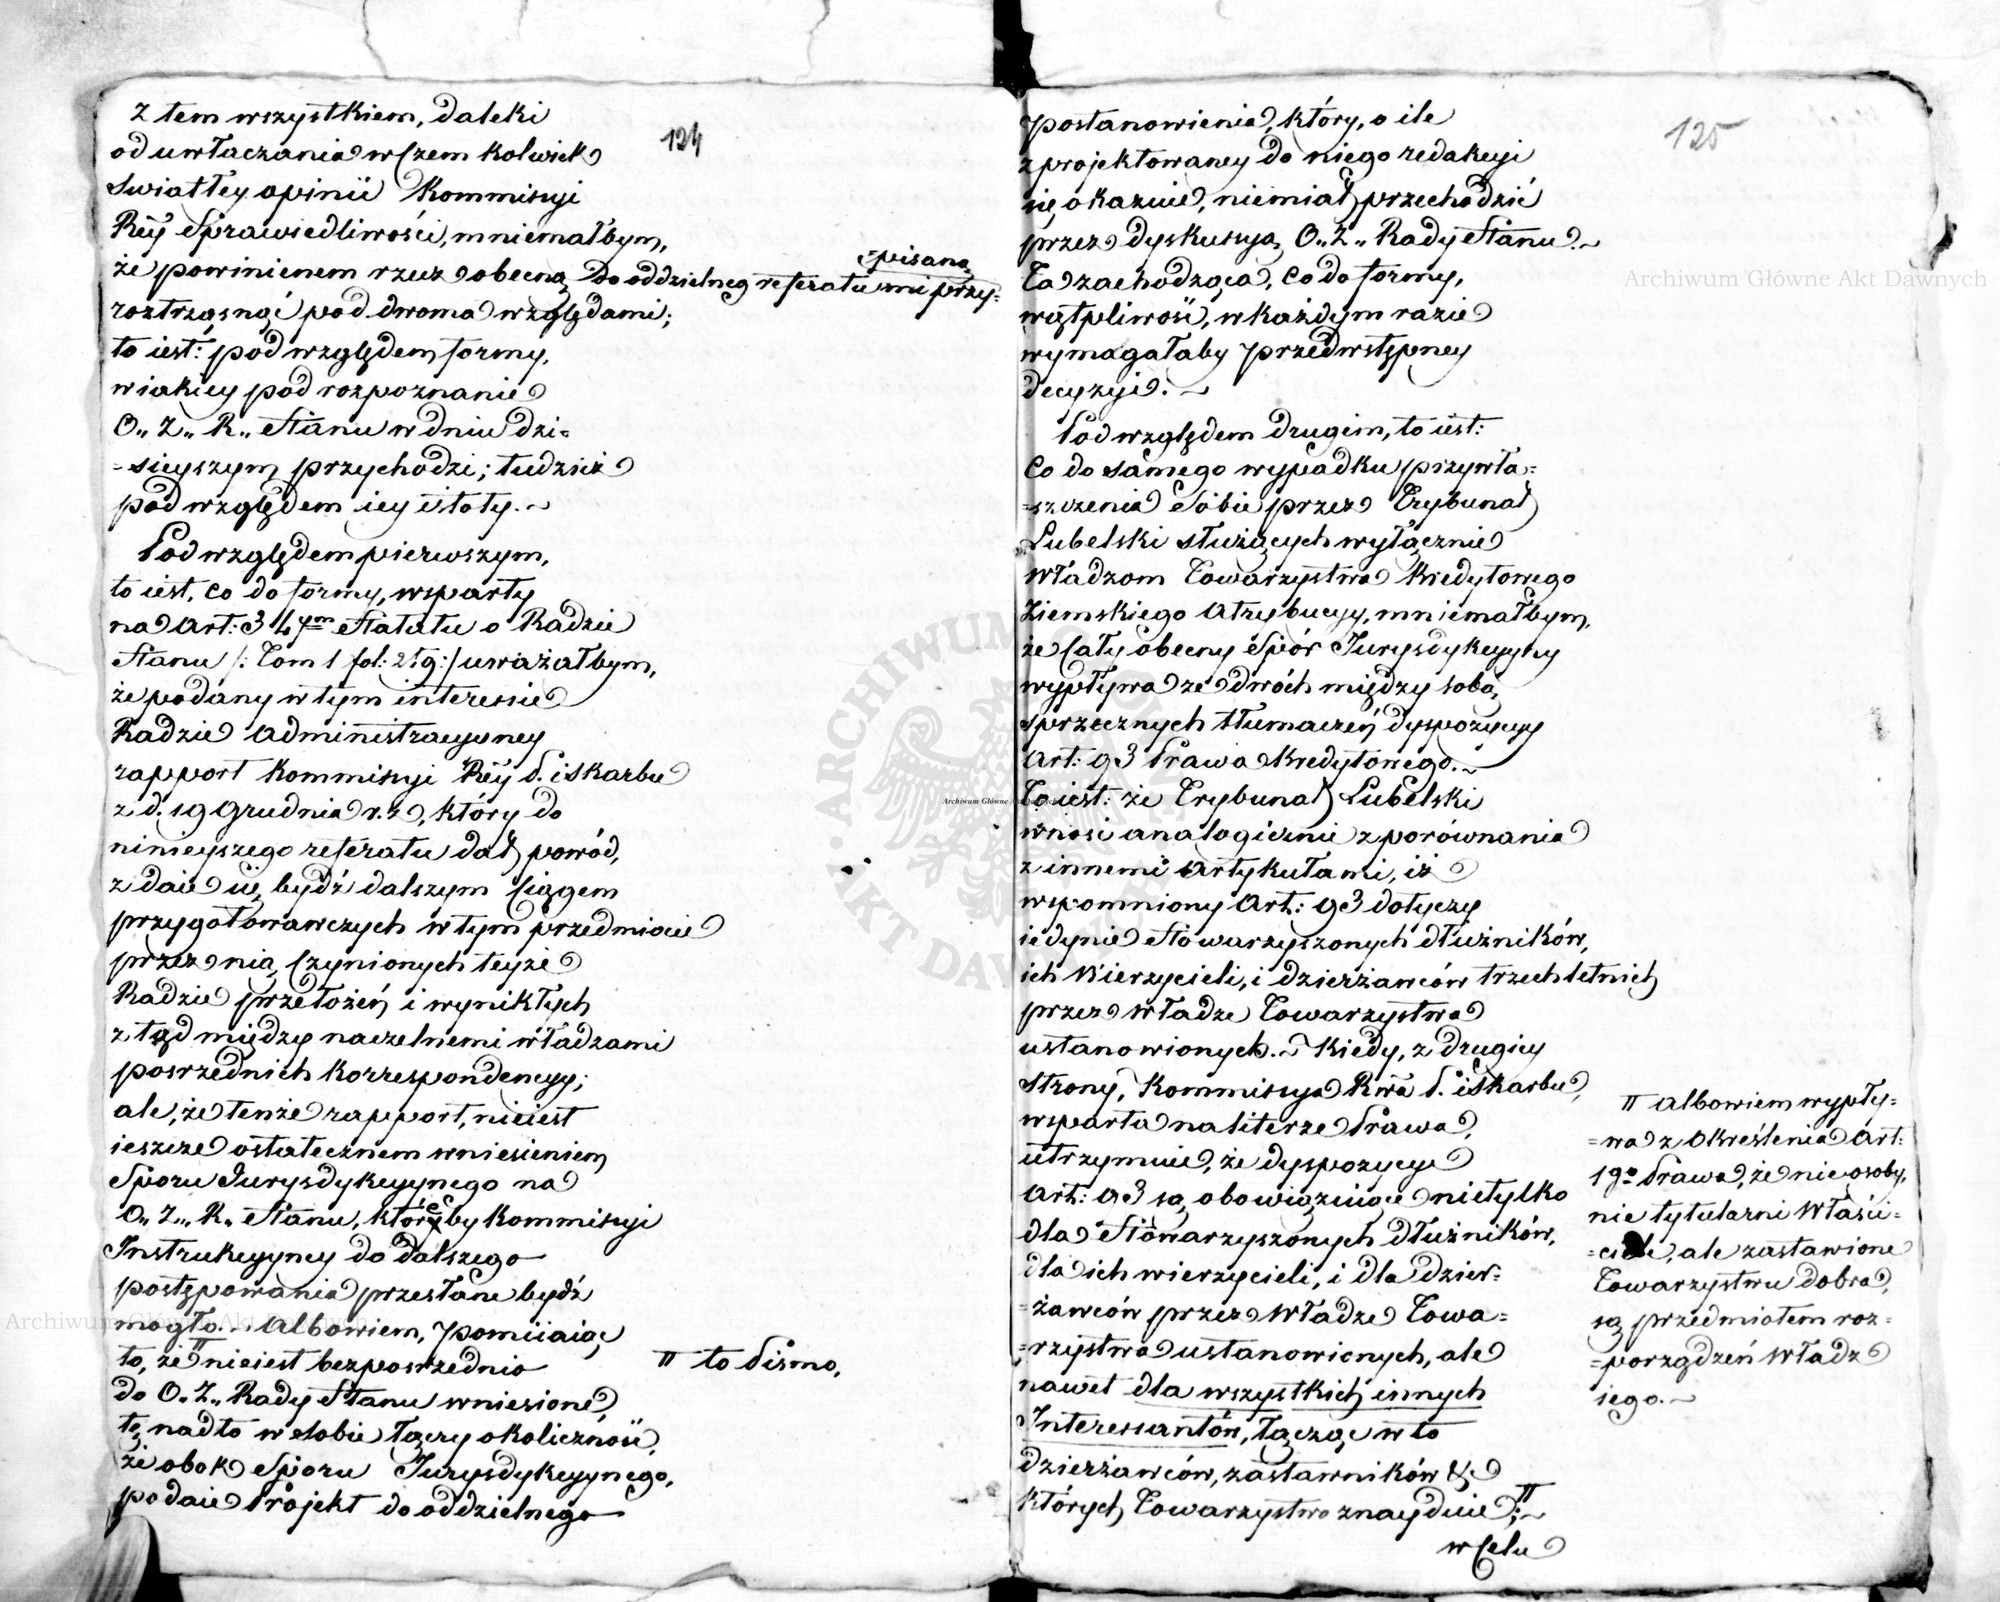 124
Z tem wszystkiem, daleki
od uwłaczania w czem kolwiek
Swiatłey opinii Kommissyi
Rey Sprawiedliwości, mniemałbym,
że powinienem rzecz obecną do oddzielneg referatu mi przy=
=pisaną
roztrząsnąć pod dwoma względami;
to iest: pod względem formy,
w iakiey pod rozpoznanie
O„ Z„ R„ Stanu w dniu dzi=
=sieyszym przychodzi; tudzież
pod względem iey istoty.~
Pod względem pierwszym,
to iest, co do formy, wsparty
na Art: 34ym Statutu o Radzie
Stanu /: Tom 1 fol: 219:/ uważałbym,
że podany w tym interessie
Radzie Administracyyney
rapport Kommissyi Rey P. i Skarbu
z d. 19 Grudnia r. z, który do
ninieyszego referatu dał powód,
zdaie się bydź dalszym ciągem
przygotowawczych w tym przedmiocie
przez nią czynionych teyże
Radzie przełożeń i wynikłych
ztąd między naczelnemi władzami
posrzednich korrespondencyy;
ale, że tenże rapport, nieiest
ieszcze ostatecznem wniesieniem
Sporu Jurysdykcyynego na
O„ Z„ R„ Stanu, któreby Kommissyi
Instrukcyyney do dalszego
postępowania przesłane bydź
mogło.~ Albowiem, pomiiaiąc
to, że nieiest bezposrzednio
π to Pismo,
do O„ Z„ Rady Stanu wniesione,
te nadto w sobie łączy okoliczność,
że obok Sporu Jurysdykcyynego,
podaie Projekt do oddzielnego
125
postanowienia, który, o ile
z projektowaney do niego redakcyi
się okazuie, niemiał przechodzić
przez dyskussyą O„ Z„ Rady Stanu.~
Ta zachodząca, co do formy,
wątpliwość, w każdym razie
wymagałaby przedwstępney
decyzyi.~
Pod względem drugim, to iest:
co do samego wypadku przywła=
=szczenia Sobie przez Trybunał
Lubelski służących wyłącznie
Władzom Towarzystwa Kredytowego
Ziemskiego atrybucyy, mniemałbym,
że cały obecny Spór Jurysdykcyyny
wypływa ze dwóch między sobą
sprzecznych tłumaczeń dyspozycyy
Art: 93 Prawa Kredytowego.~
To iest: że Trybunał Lubelski
wnosi analogicznie z porównania
z innemi Artykułami, iż
wspomniony Art: 93 dotyczy
iedynie Stowarzyszonych dłużników,
ich Wierzycieli, i dzierżawców trzechletnich
przez Władze Towarzystwa
ustanowionych.~ Kiedy, z drugiey
strony, Kommissya Rwa P. i Skarbu,
wsparta na literze Prawa,
utrzymuie, że dyspozycye
Art: 93 są obowiązuiące nietylko
dla Stowarzyszonych dłużników,
dla ich wierzycieli, i dla dzier=
=żawców przez Władze Towa=
=rzystwa ustanowionych, ale
nawet dla wszystkich innych
Interessantów, łącząc w to
dzierżawców, zastawników &c
których Towarzystwo znayduie; π~
w celu
π albowiem wypły=
=wa z określenia Art:
1go Prawa, że nie osoby,
nie tytularni Właści=
=ciele, ale zastawione
Towarzystwu dobra,
są przedmiotem roz=
=porządzeń Władz
iego.~
Archiwum Główne Akt Dawnych
Archiwum Główne Akt Dawnych
Archiwum Główne Akt Dawnych